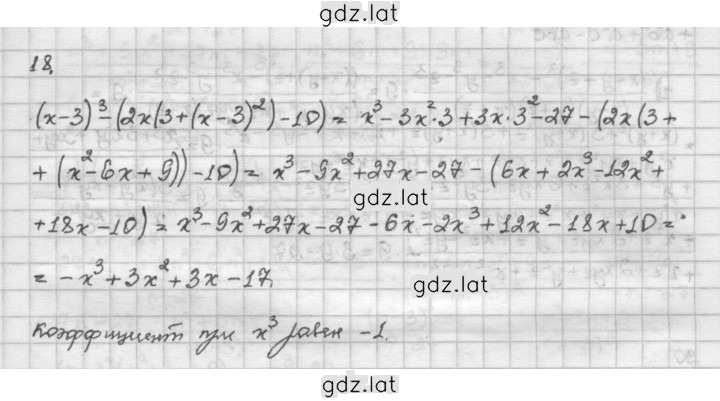 gdz.lat
18.
(x-3)³-(2x(3+(x-3)²)-10)= x³-3x²·3+3x·3²-27-(2x(3+
+(x²-6x+9))-10)= x³-9x²+27x-27-(6x+2x³-12x²+
gdz.lat
+18x-10)= x³-9x²+27x-27-6x-2x³+12x²-18x+10=
= -x³+3x²+3x-17.
gdz.lat
Коэффициент при x³ равен -1.
gdz.lat